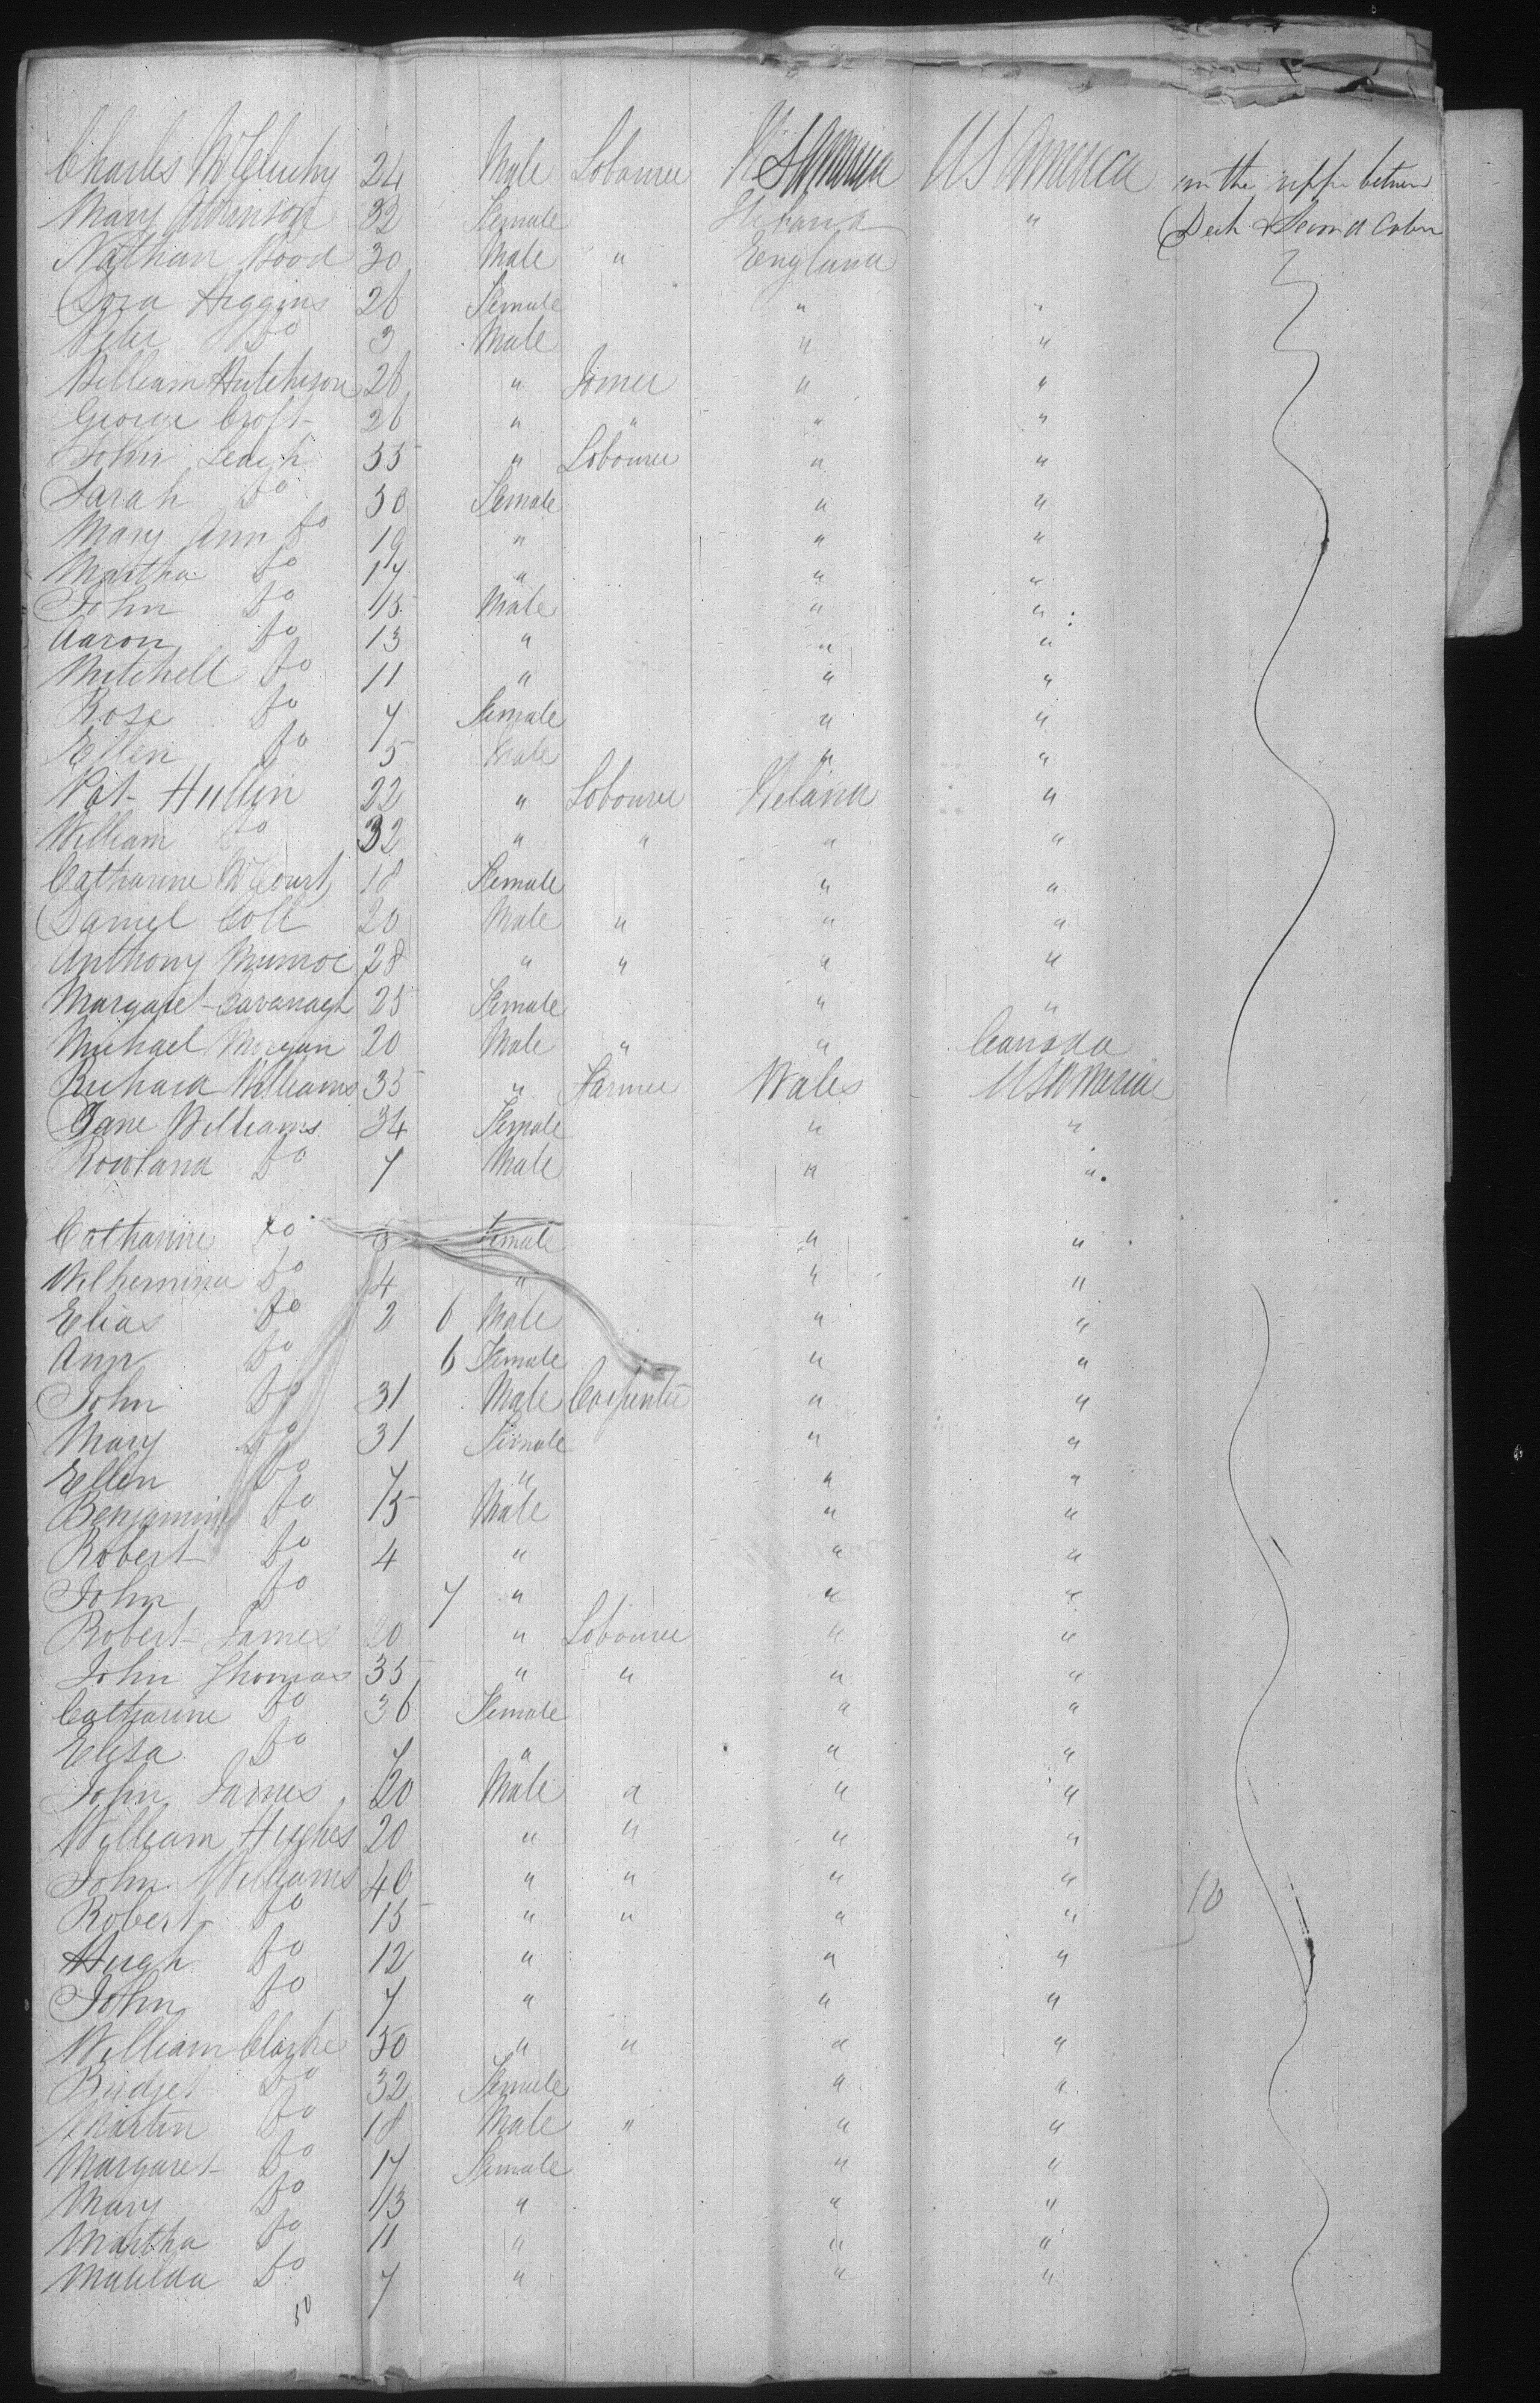 Charles McCluchy 24 Male Labourer U S America U S America in the upper between
Mary Atkinson 32 Female Ireland " Deck & Second Cabin
Nathan Wood 30 Male " England
Dora Higgins 26 Female " "
Peter Do 3 Male " "
William Hutchison 28 " Joiner " "
George Croft 26 " " " "
John Leach 55 " Labourer " "
Sarah Do 50 Female " "
Mary Ann Do 19 " " "
Martha Do 17 " " "
John Do 15 Male " "
Aaron Do 13 " " "
Mitchell Do 11 " " "
Rose Do 7 Female " "
Ellen Do 5 Male " "
Pat Hullin 22 " Labourer Ireland "
William Do 32 " " " "
Catharine McCourt 18 Female " "
Daniel Coll 20 Male " " "
Anthony Munroe 28 " " " "
Margaret Cavanagh 25 Female " "
Michael Morgan 20 Male " " Canada
Richard Williams 35 " Farmer Wales U S America
Jane Williams 34 Female " "
Rowland Do 7 Male " "
Catharine Do Female " "
Wilhemina Do 4 " " "
Elias Do 2 6 Male " "
Ann Do 6 Female " "
John Do 31 Male Carpenter " "
Mary Do 31 Female " "
Ellen Do 7 " " "
Benjamin Do 5 Male " "
Robert Do 4 " " "
John Do 7 " " "
Robert James 20 " Labourer " "
John Thomas 35 " " " "
Catharine Do 36 Female " "
Eliza Do 7 " " "
John James 20 Male " " "
William Hughes 20 " " " "
John Williams 40 " " " "
Robert Do 15 " " " " 10
Hugh Do 12 " " "
John Do 7 " " "
William Clarke 50 " " " "
Bridget Do 32 Female " "
Martin Do 18 Male " " "
Margaret Do 17 Female " "
Mary Do 13 " " "
Martha Do 11 " " "
Matilda Do 7 " " "
50